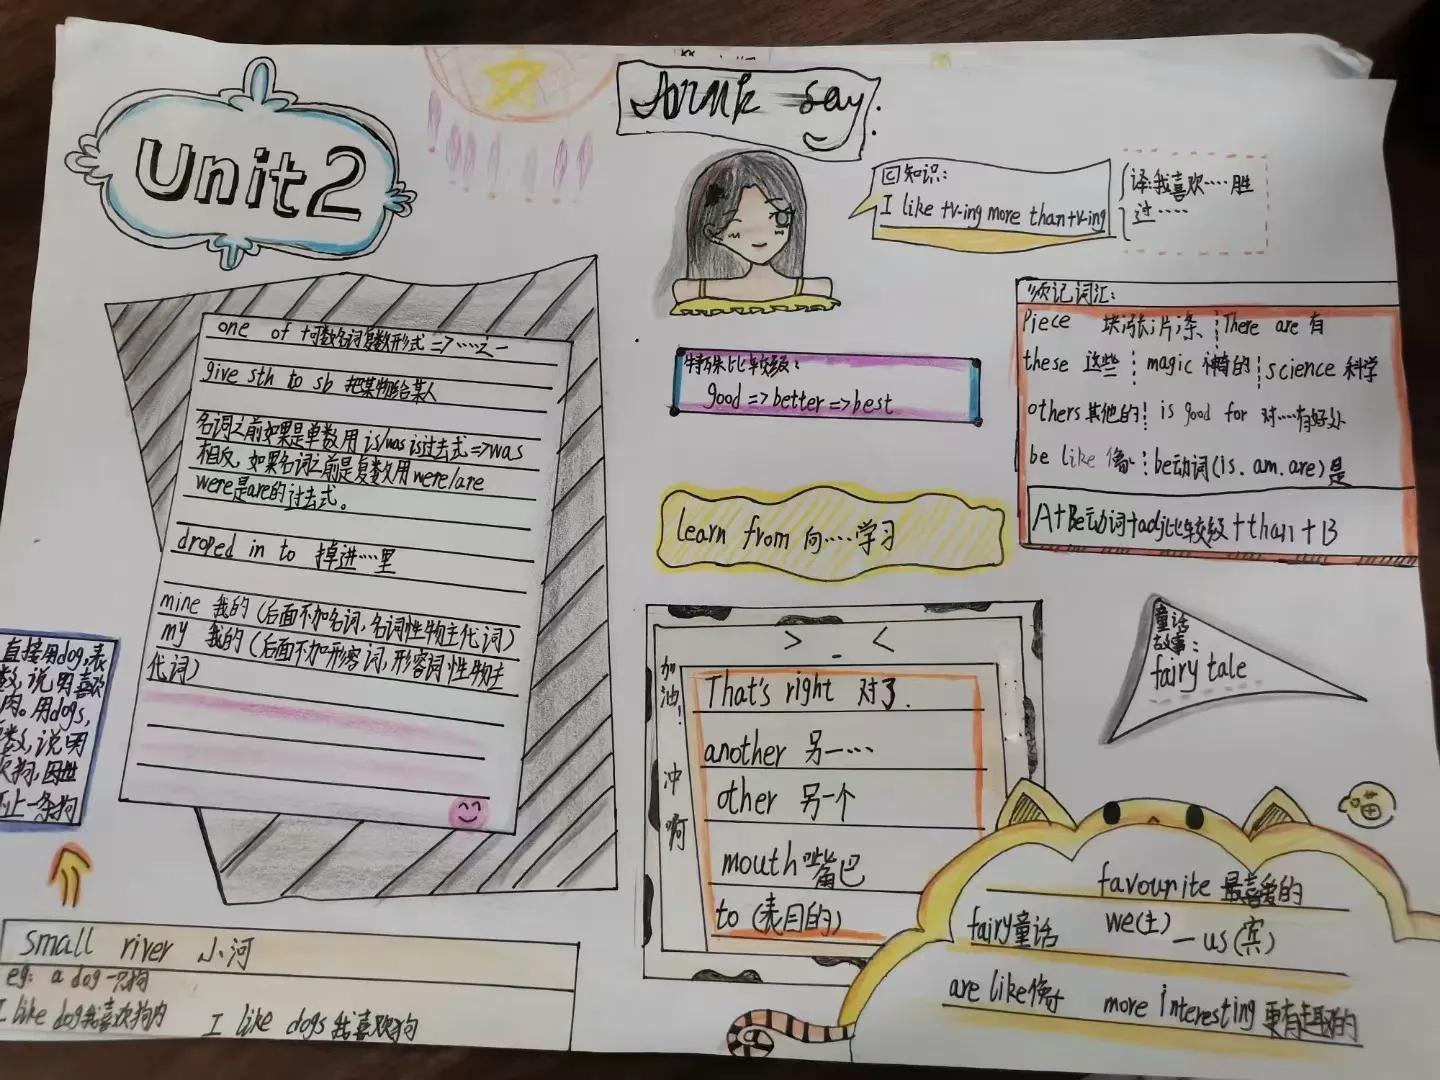 Unit2
say.
巳知识:
I like +v-ing more than+v-ing
译我喜欢····胜
过····
one of +可数名词复数形式=>·····之一
give sth to sb 把某物给某人
名词之前如果是单数用 is/was is过去式=>was
相反,如果名词之前是复数用were/are
were是are的过去式。
droped in to 掉进····里
mine 我的(后面不加名词,名词性物主代词)
my 我的(后面不加形容词,形容词性物主
代词)
特殊比较级:
good=>better=>best
须记词汇:
Piece 块/张/片/条 There are 有
these 这些 magic 神奇的 science 科学
others其他的 is good for 对····有好处
be like 像 be动词(is.am.are)是
A+Be动词+adj比较级+than+B
learn from 向····学习
童话
故事:
fairy tale
直接用dog,表
数,说明喜欢
肉。用dogs,
数,说明
欢狗,
止一条狗
加油!
冲啊
> - <
That's right 对了.
another 另一····
other 另一个
mouth嘴巴
to(表目的)
喵
favourite 最喜爱的
fairy童话 we(主)—us(宾)
are like像 more interesting更有趣的
small river 小河
eg: a dog 一只狗
I like dog我喜欢狗肉 I like dogs我喜欢狗